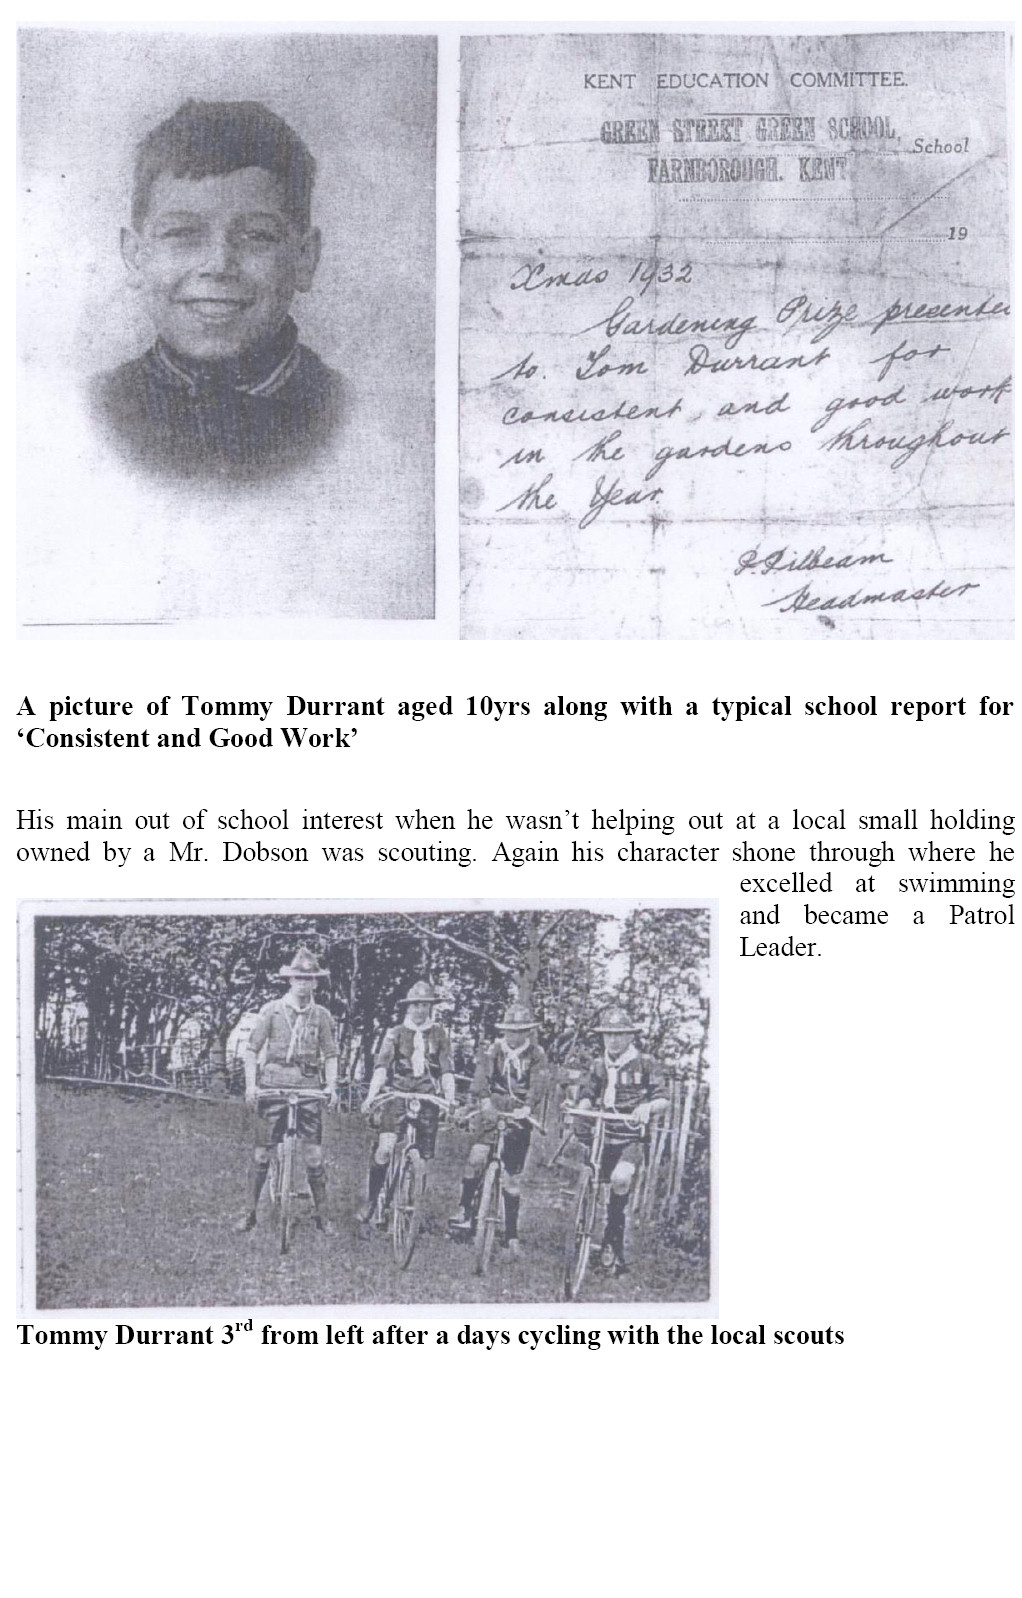 KENT EDUCATION COMMITTEE.
GREEN STREET GREEN SCHOOL,
School
FARNBOROUGH. KENT
19
Xmas 1932
Gardening Prize presented
to. Tom Durrant for
consistent and good work
in the gardens throughout
the Year.
P. Pilbeam
Headmaster
A picture of Tommy Durrant aged 10yrs along with a typical school report for
‘Consistent and Good Work’
His main out of school interest when he wasn’t helping out at a local small holding
owned by a Mr. Dobson was scouting. Again his character shone through where he
excelled at swimming
and became a Patrol
Leader.
Tommy Durrant 3rd from left after a days cycling with the local scouts